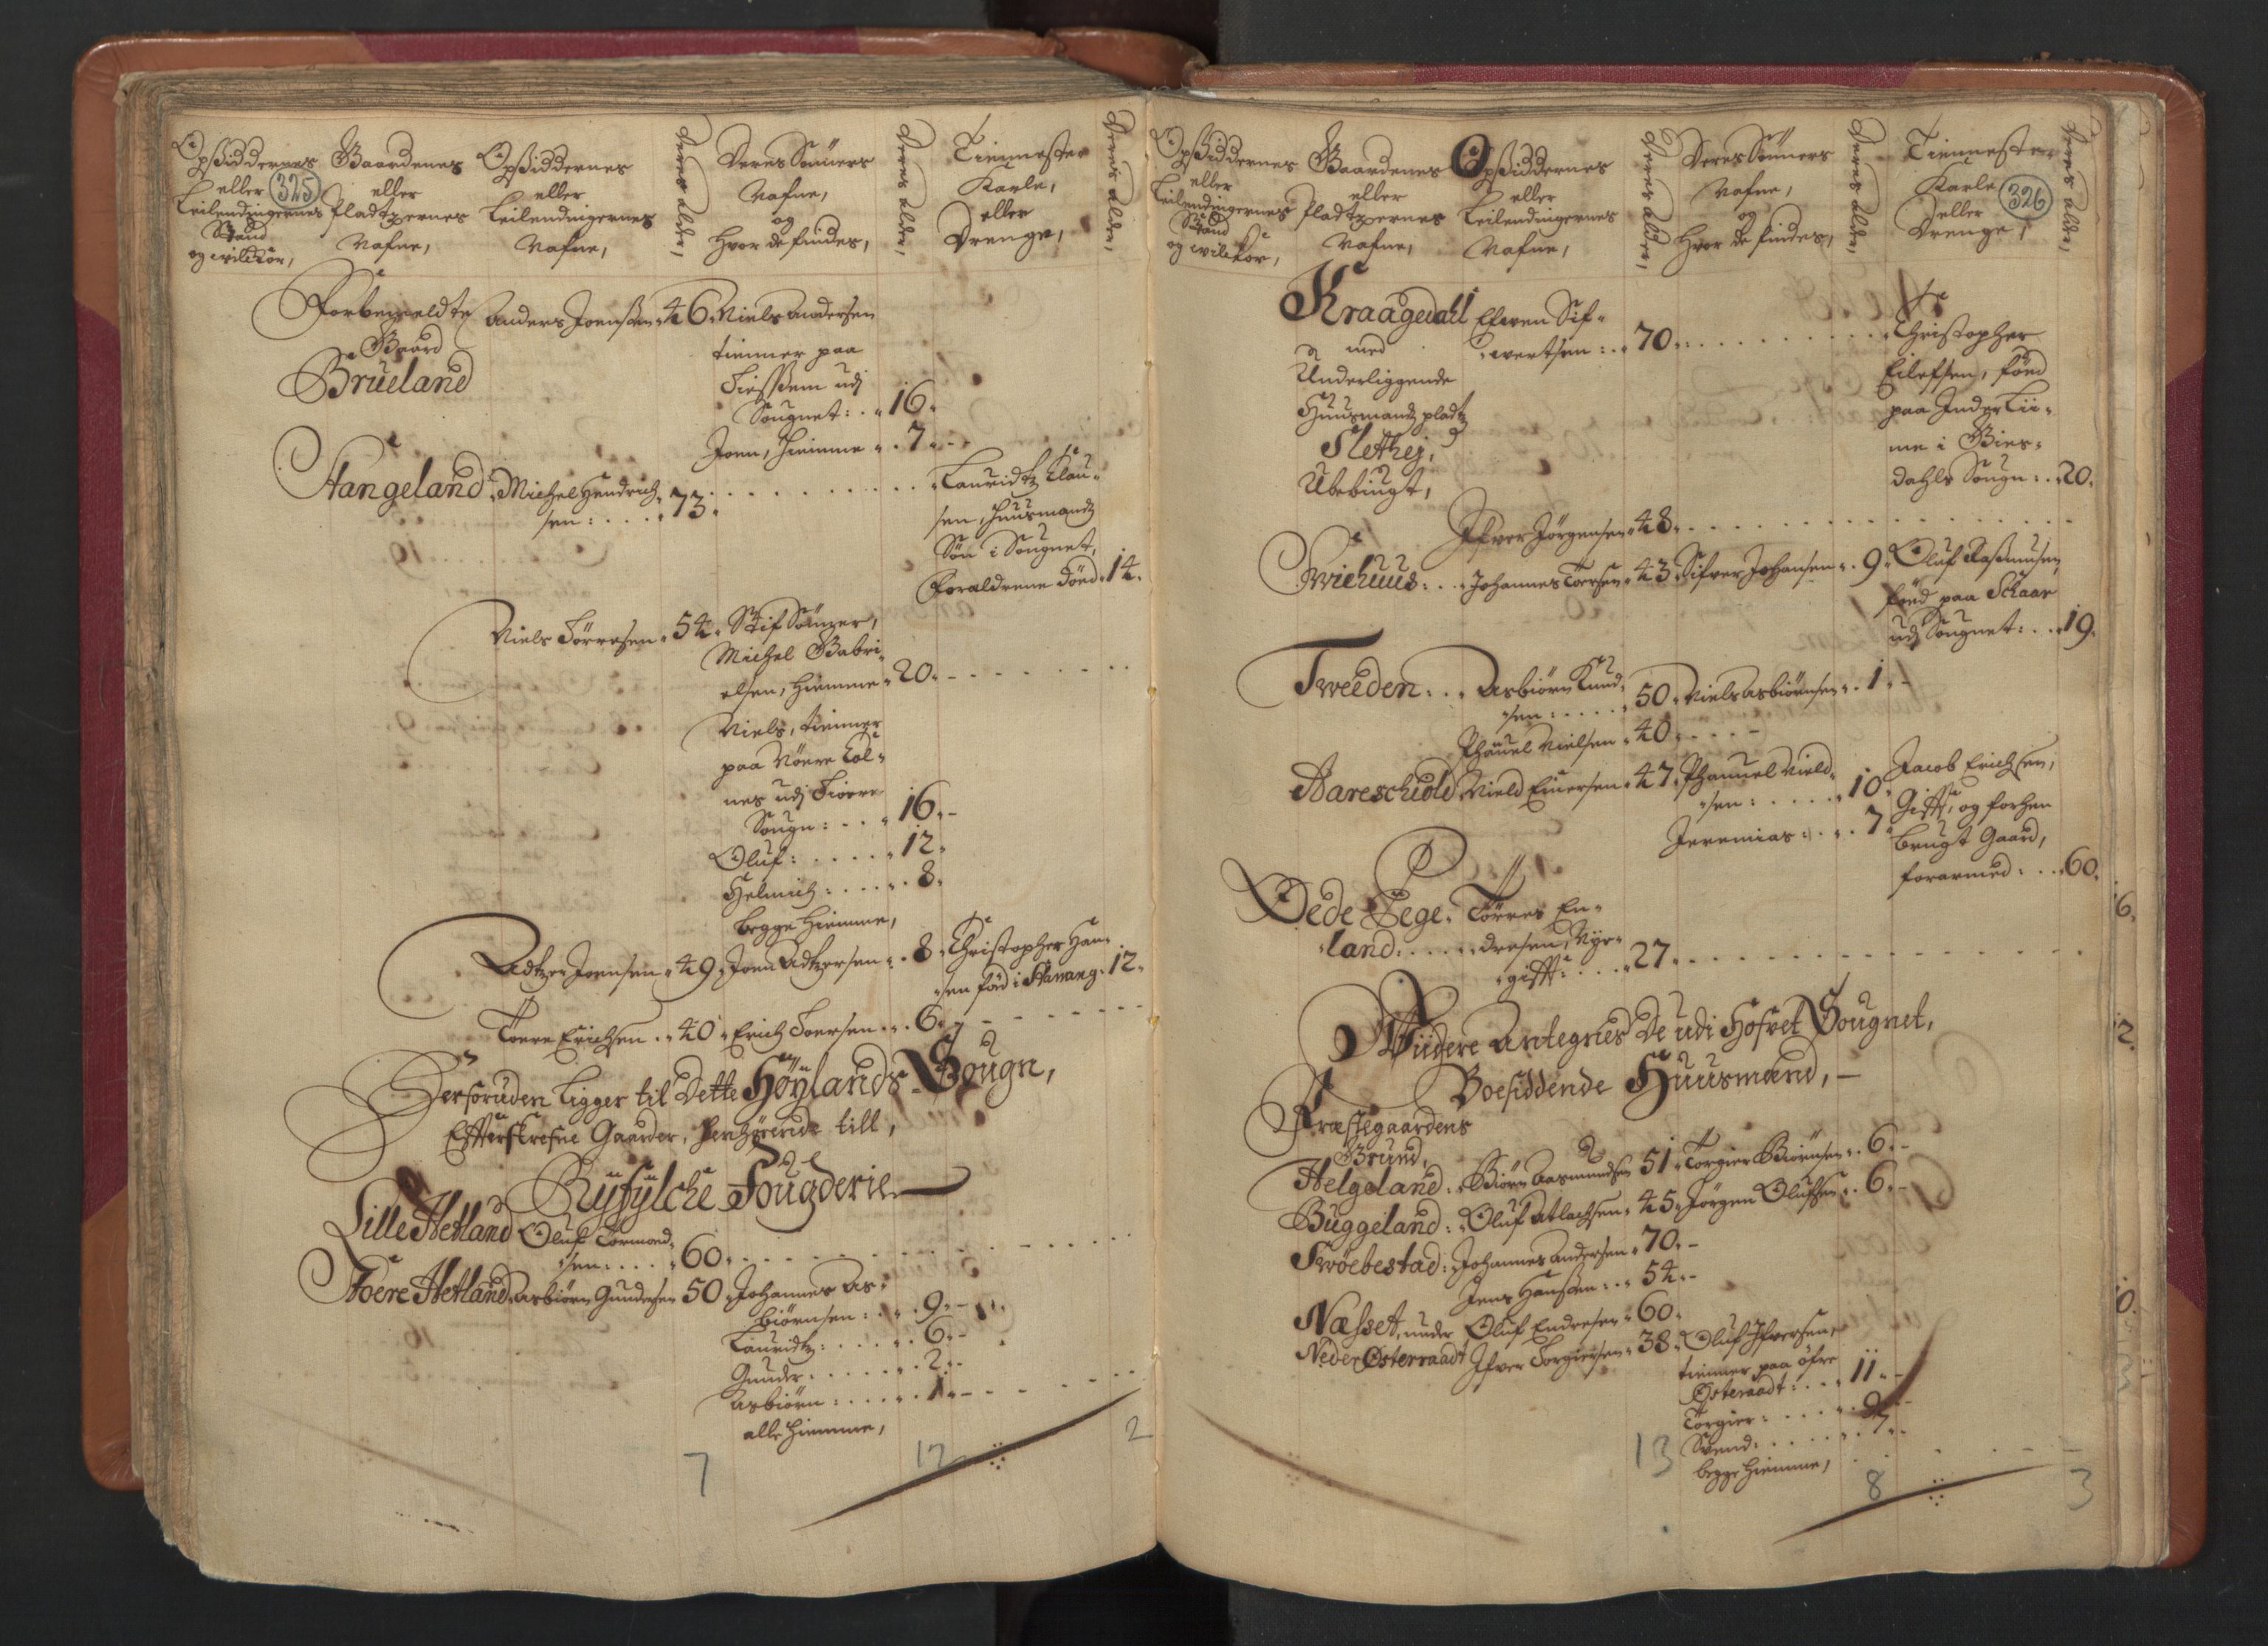 325
Opsiddernes
eller
Leilendingernes
Stand
og wilckor,
Gaardenes
eller
Pladtzernes
Nafne,
Opsiddernes
eller
Leilendingernes
Nafne,
Deres alder,
Deres Sønners
Nafne,
og
Hvor de findes,
Deres alder,
Tienneste
Karle,
eller
Drenge,
Deris alder,
Forbemeldte Anders Joensen 46. Niels Andersen
Gaard
Brüeland
tienner paa
udj
Sougnet: 16.
Joen, hiemme 7.
Stangeland Michel Hendrich-
sen: 73.
Lauridtz Clau-
sen, huusmandtz
Søn i Sougnet,
Foraldrene død 14.
Niels Törresen 54. Stif Sönner,
Michel Gabri-
elsen, hiemme 20.
Niels, tienner
paa Nöere Col-
nes udj
Sougn: 16.
Oluf: 12.
Helmich: 8.
begge hiemme,
Adtzer Joensen 49. Joen Adtzersen 8. Christopher Han-
sen föd i Stavang. 12.
Toere Erichsen 40. Erich Toersen 6.
Derforuden ligger til Dette Höylands Sougn,
Efterskrefne Gaarder, henhørende till,
Ryfylche Fougderie
Lille Hetland Oluf Tormond-
sen: 60.
Stoere Hetland Asbiörn Gundersen 50. Johannes As-
biörnsen: 9.
Lauridtz: 6.
Gunder 2.
Asbiörn: 1.
alle hiemme,
7 12 2
326
Opsiddernes
eller
Leilendingernes
Stand
og wilckor,
Gaardenes
eller
Pladtzernes
Nafne,
Opsiddernes
eller
Leilendingernes
Nafne,
Deres alder,
Deres Sønners
Nafne,
og
Hvor de findes,
Deres alder,
Tienneste
Karle
eller
Drenge,
Deres alder,
Kraagedall Elwen Sif-
wertsen: 70.
med
Underliggende
Huusmandtz pladtz
Slethej,
Ubebiugt,
Christopher
Eilefsen, föed
paa Inder Lii-
me i Gies-
dahls Sougn: 20.
Ifver Jörgensen 48.
Swiehuus: Johannes Toersen 43. Sifver Johansen 9. Oluf Rasmusen
föed paa Schaar
udj Sougnet: 19.
Tweeden: Asbiörn Knud-
sen: 50. Niels Asbiörnsen 1.
Phauel Nielsen 40.
Aareschiold Nield Einersen 47. Phauel Nield-
sen: 10.
Jeremias: 7.
Jacob Erichsen,
Gift, og forhen
brugt Gaard,
forarmed: 60.
Øede Eege-
land: Törres En-
dresen, Nye-
gift: 27.
Wiidere Antegnes De udi Hofvet Sougnet,
Boesiddende Huusmænd,
Præstegaardens
Grund,
Helgeland: Biörn Aasmundsen 51. Torgier Biörnsen 6.
Buggeland: Oluf Atlachsen 45. Jörgen Olufsen 6.
Swöebestad: Johannes Andersen 70.
Jens Hansen: 54.
Næsset, under Oluf Endresen 60.
Neder Østerraadt Ifver Torgiersen 38. Oluf Ifversen,
tienner paa öfre
Østeraadt: 11.
Torgier: 9.
Svend: 7.
begge hiemme,
13 8 3